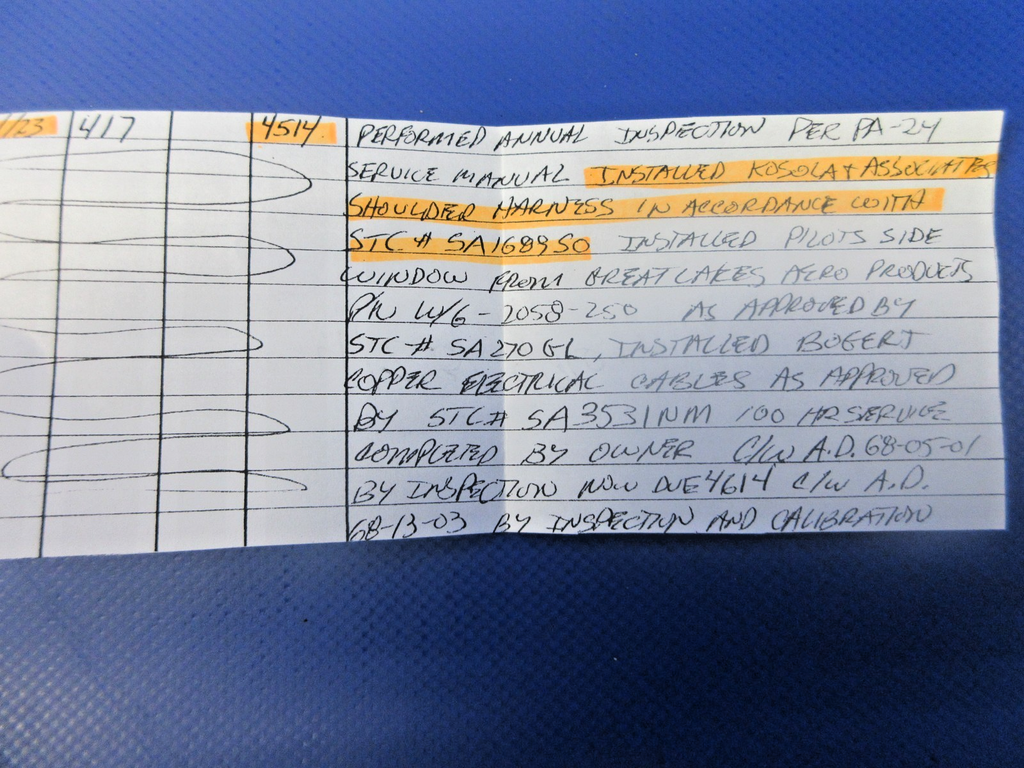 1/23 417 4514 PERFORMED ANNUAL INSPECTION PER PA-24
SERVICE MANUAL INSTALLED KOSOLA & ASSOCIATES
SHOULDER HARNESS IN ACCORDANCE WITH
STC # SA1689SO INSTALLED PILOTS SIDE
WINDOW FROM GREAT LAKES AERO PRODUCTS
P/N W/G-2058-250 AS APPROVED BY
STC # SA270GL, INSTALLED BOGERT
COPPER ELECTRICAL CABLES AS APPROVED
BY STC# SA3531NM 100 HR SERVICE
COMPLETED BY OWNER C/W A.D. 68-05-01
BY INSPECTION NOW DUE 4614 C/W A.D.
68-13-03 BY INSPECTION AND CALIBRATION